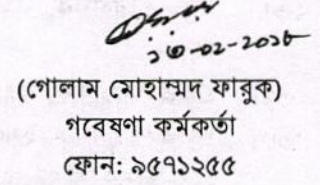 ১৩-০২-২০১৮
(গোলাম মোহাম্মদ ফারুক)
গবেষণা কর্মকর্তা
ফোন: ৯৫৭১২৫৫